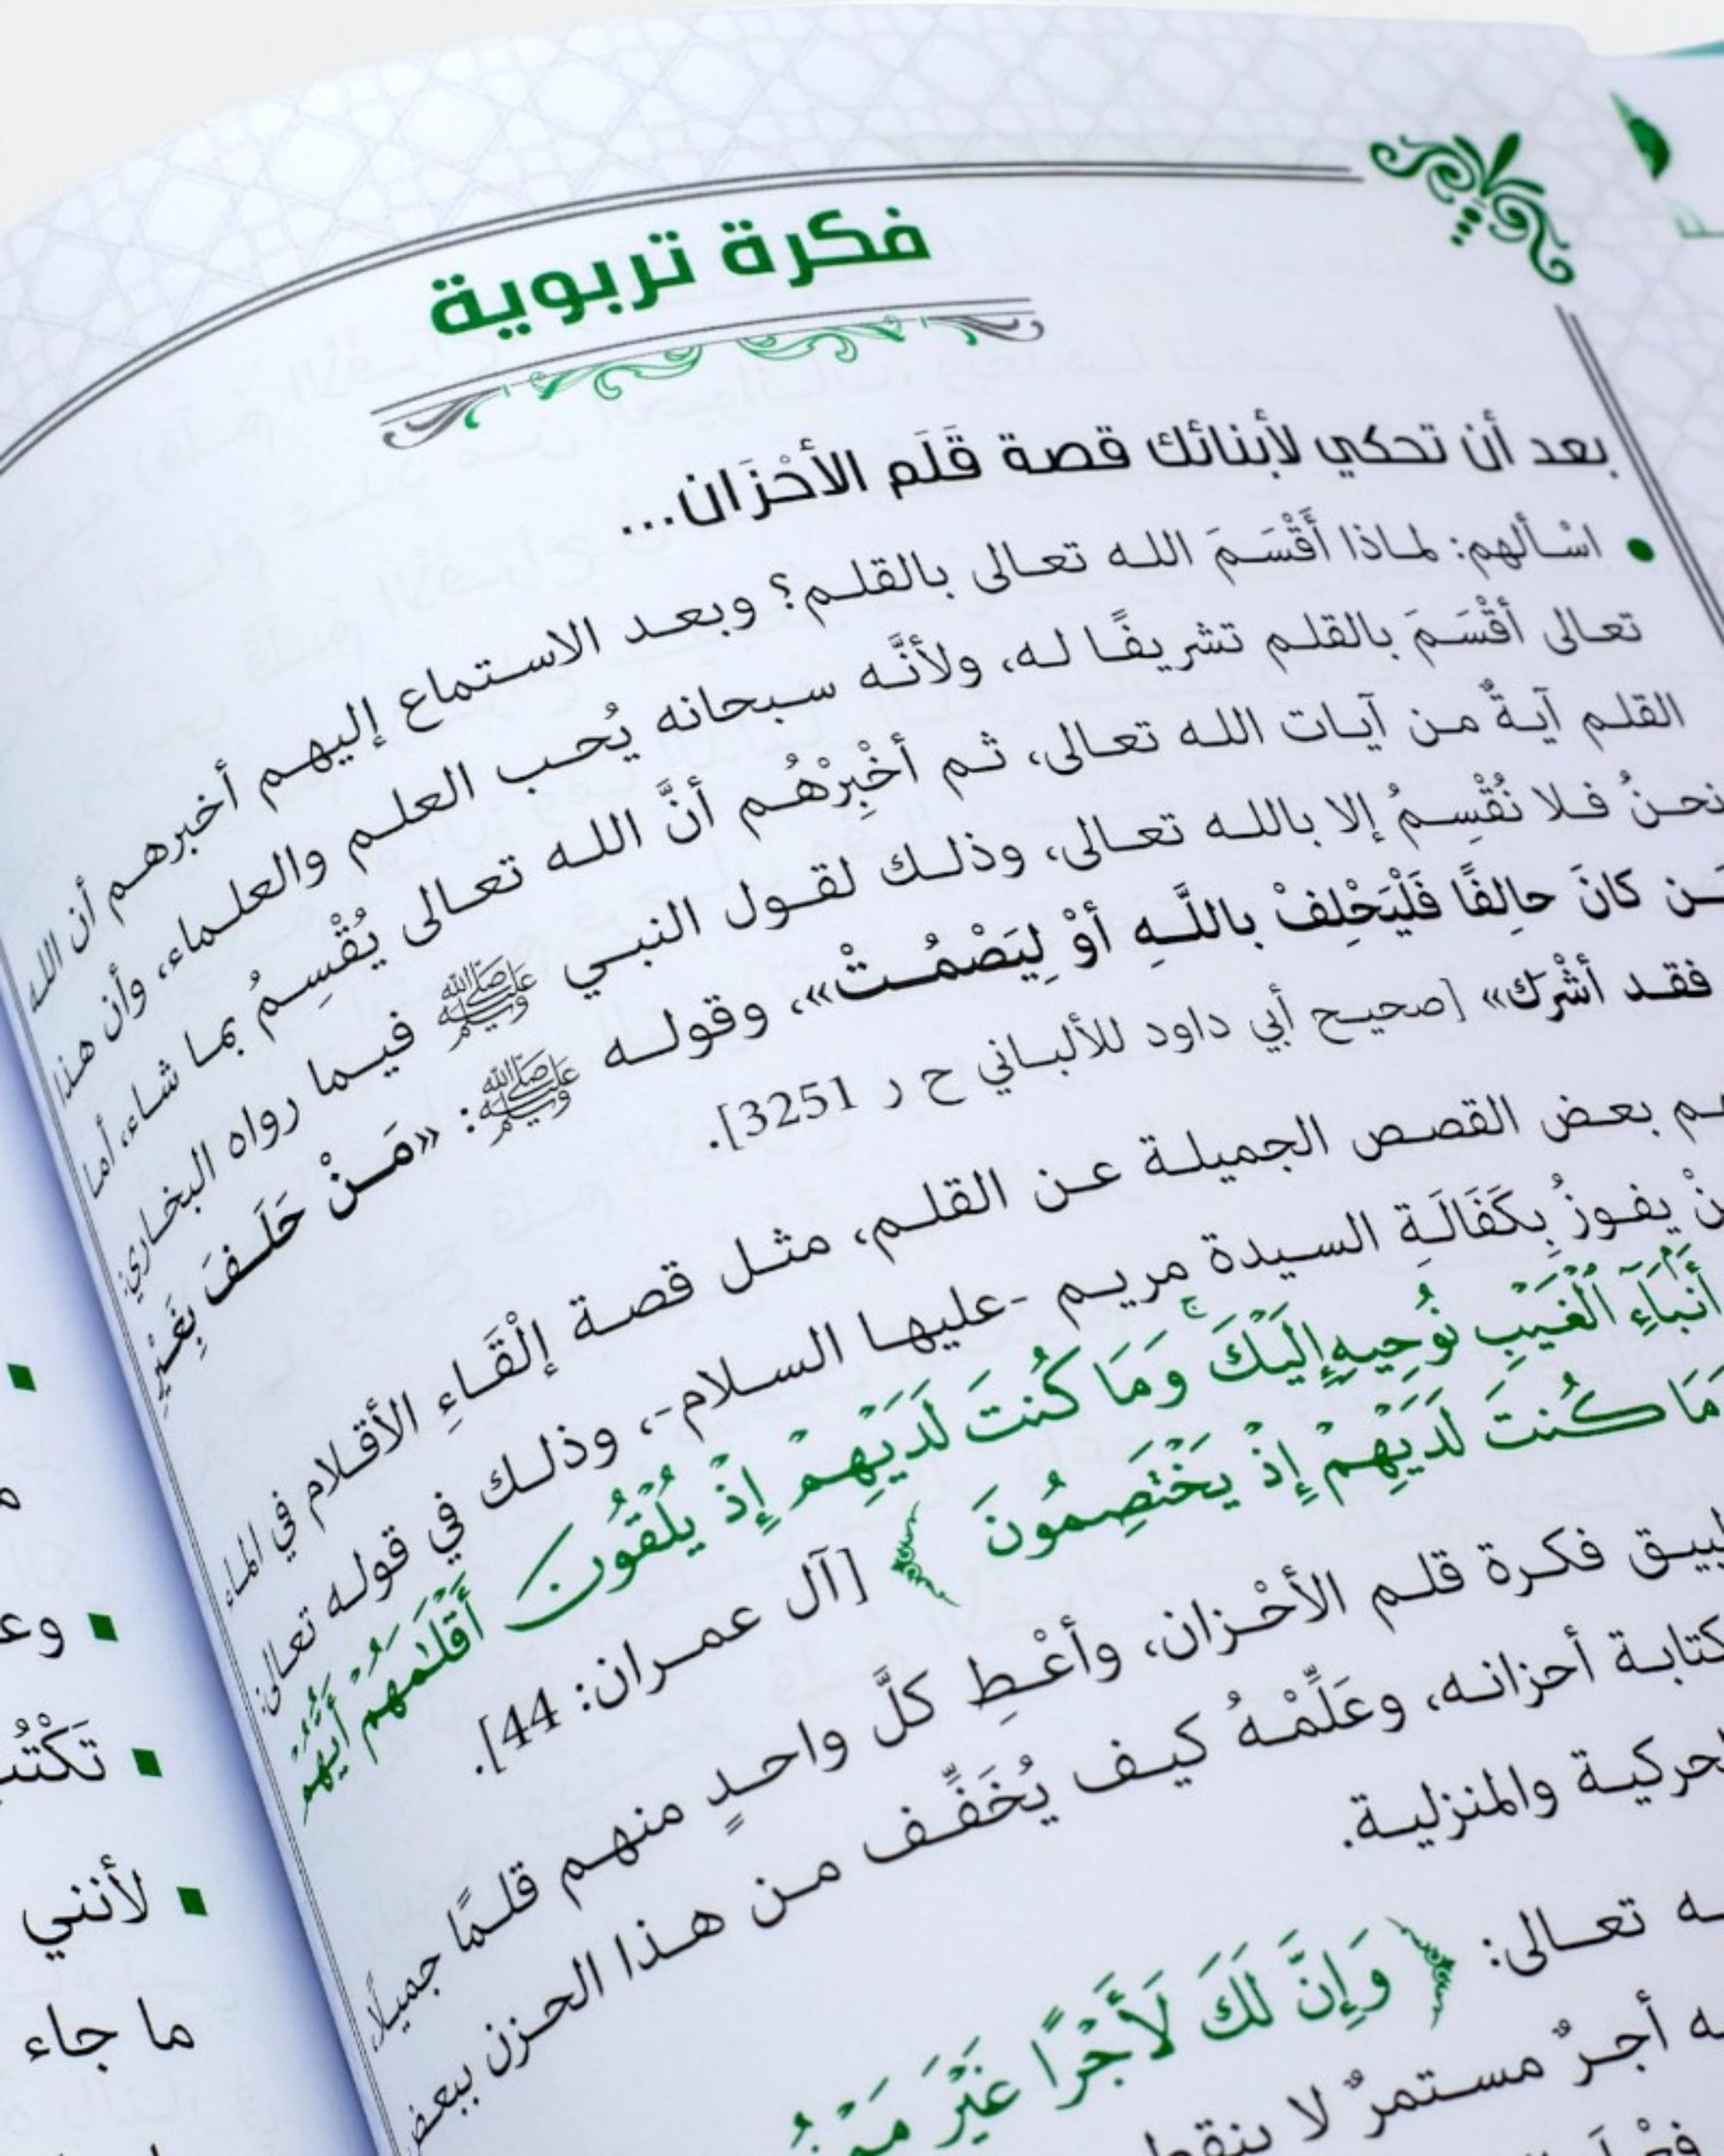 فكرة تربوية
بعد أن تحكي لأبنائك قصة قَلَم الأحْزَان...
• اسْألهم: لماذا أَقْسَمَ الله تعالى بالقلم؟ وبعد الاستماع إليهم أخبرهم أن الله
تعالى أقْسَمَ بالقلم تشريفًا له، ولأنَّه سبحانه يُحب العلم والعلماء، وأن هذا
القلم آيةٌ من آيات الله تعالى، ثم أخْبِرْهُم أنَّ الله تعالى يُقْسِمُ بما شاء، أما
نحنُ فلا نُقْسِمُ إلا بالله تعالى، وذلك لقول النبي ﷺ فيما رواه البخاري:
كانَ حالِفًا فَلْيَحْلِفْ باللَّهِ أوْ لِيَصْمُتْ»، وقوله ﷺ: «مَنْ حَلَفَ بِغَيْرِ
فقد أشْرَك» [صحيح أبي داود للألباني ح ر 3251].
بعض القصص الجميلة عن القلم، مثل قصة إلْقَاءِ الأقلام في الماء
يفوزُ بِكَفَالَةِ السيدة مريم -عليها السلام-، وذلك في قوله تعالى:
أَنۢبَآءِ ٱلۡغَيۡبِ نُوحِيهِ إِلَيۡكَۚ وَمَا كُنتَ لَدَيۡهِمۡ إِذۡ يُلۡقُونَ أَقۡلَٰمَهُمۡ أَيُّهُمۡ
وَمَا كُنتَ لَدَيۡهِمۡ إِذۡ يَخۡتَصِمُونَ ﴾ [آل عمران: 44].
فكرة قلم الأحْزان، وأعْطِ كلَّ واحدٍ منهم قلمًا جميلًا،
كتابة أحزانه، وعَلِّمْهُ كيف يُخَفِّف من هذا الحزن ببعض
والمنزلية.
تعالى: ﴿ وَإِنَّ لَكَ لَأَجۡرًا غَيۡرَ
أجرٌ مستمرٌ لا
■
■
■
■ لأنني
ما جاء